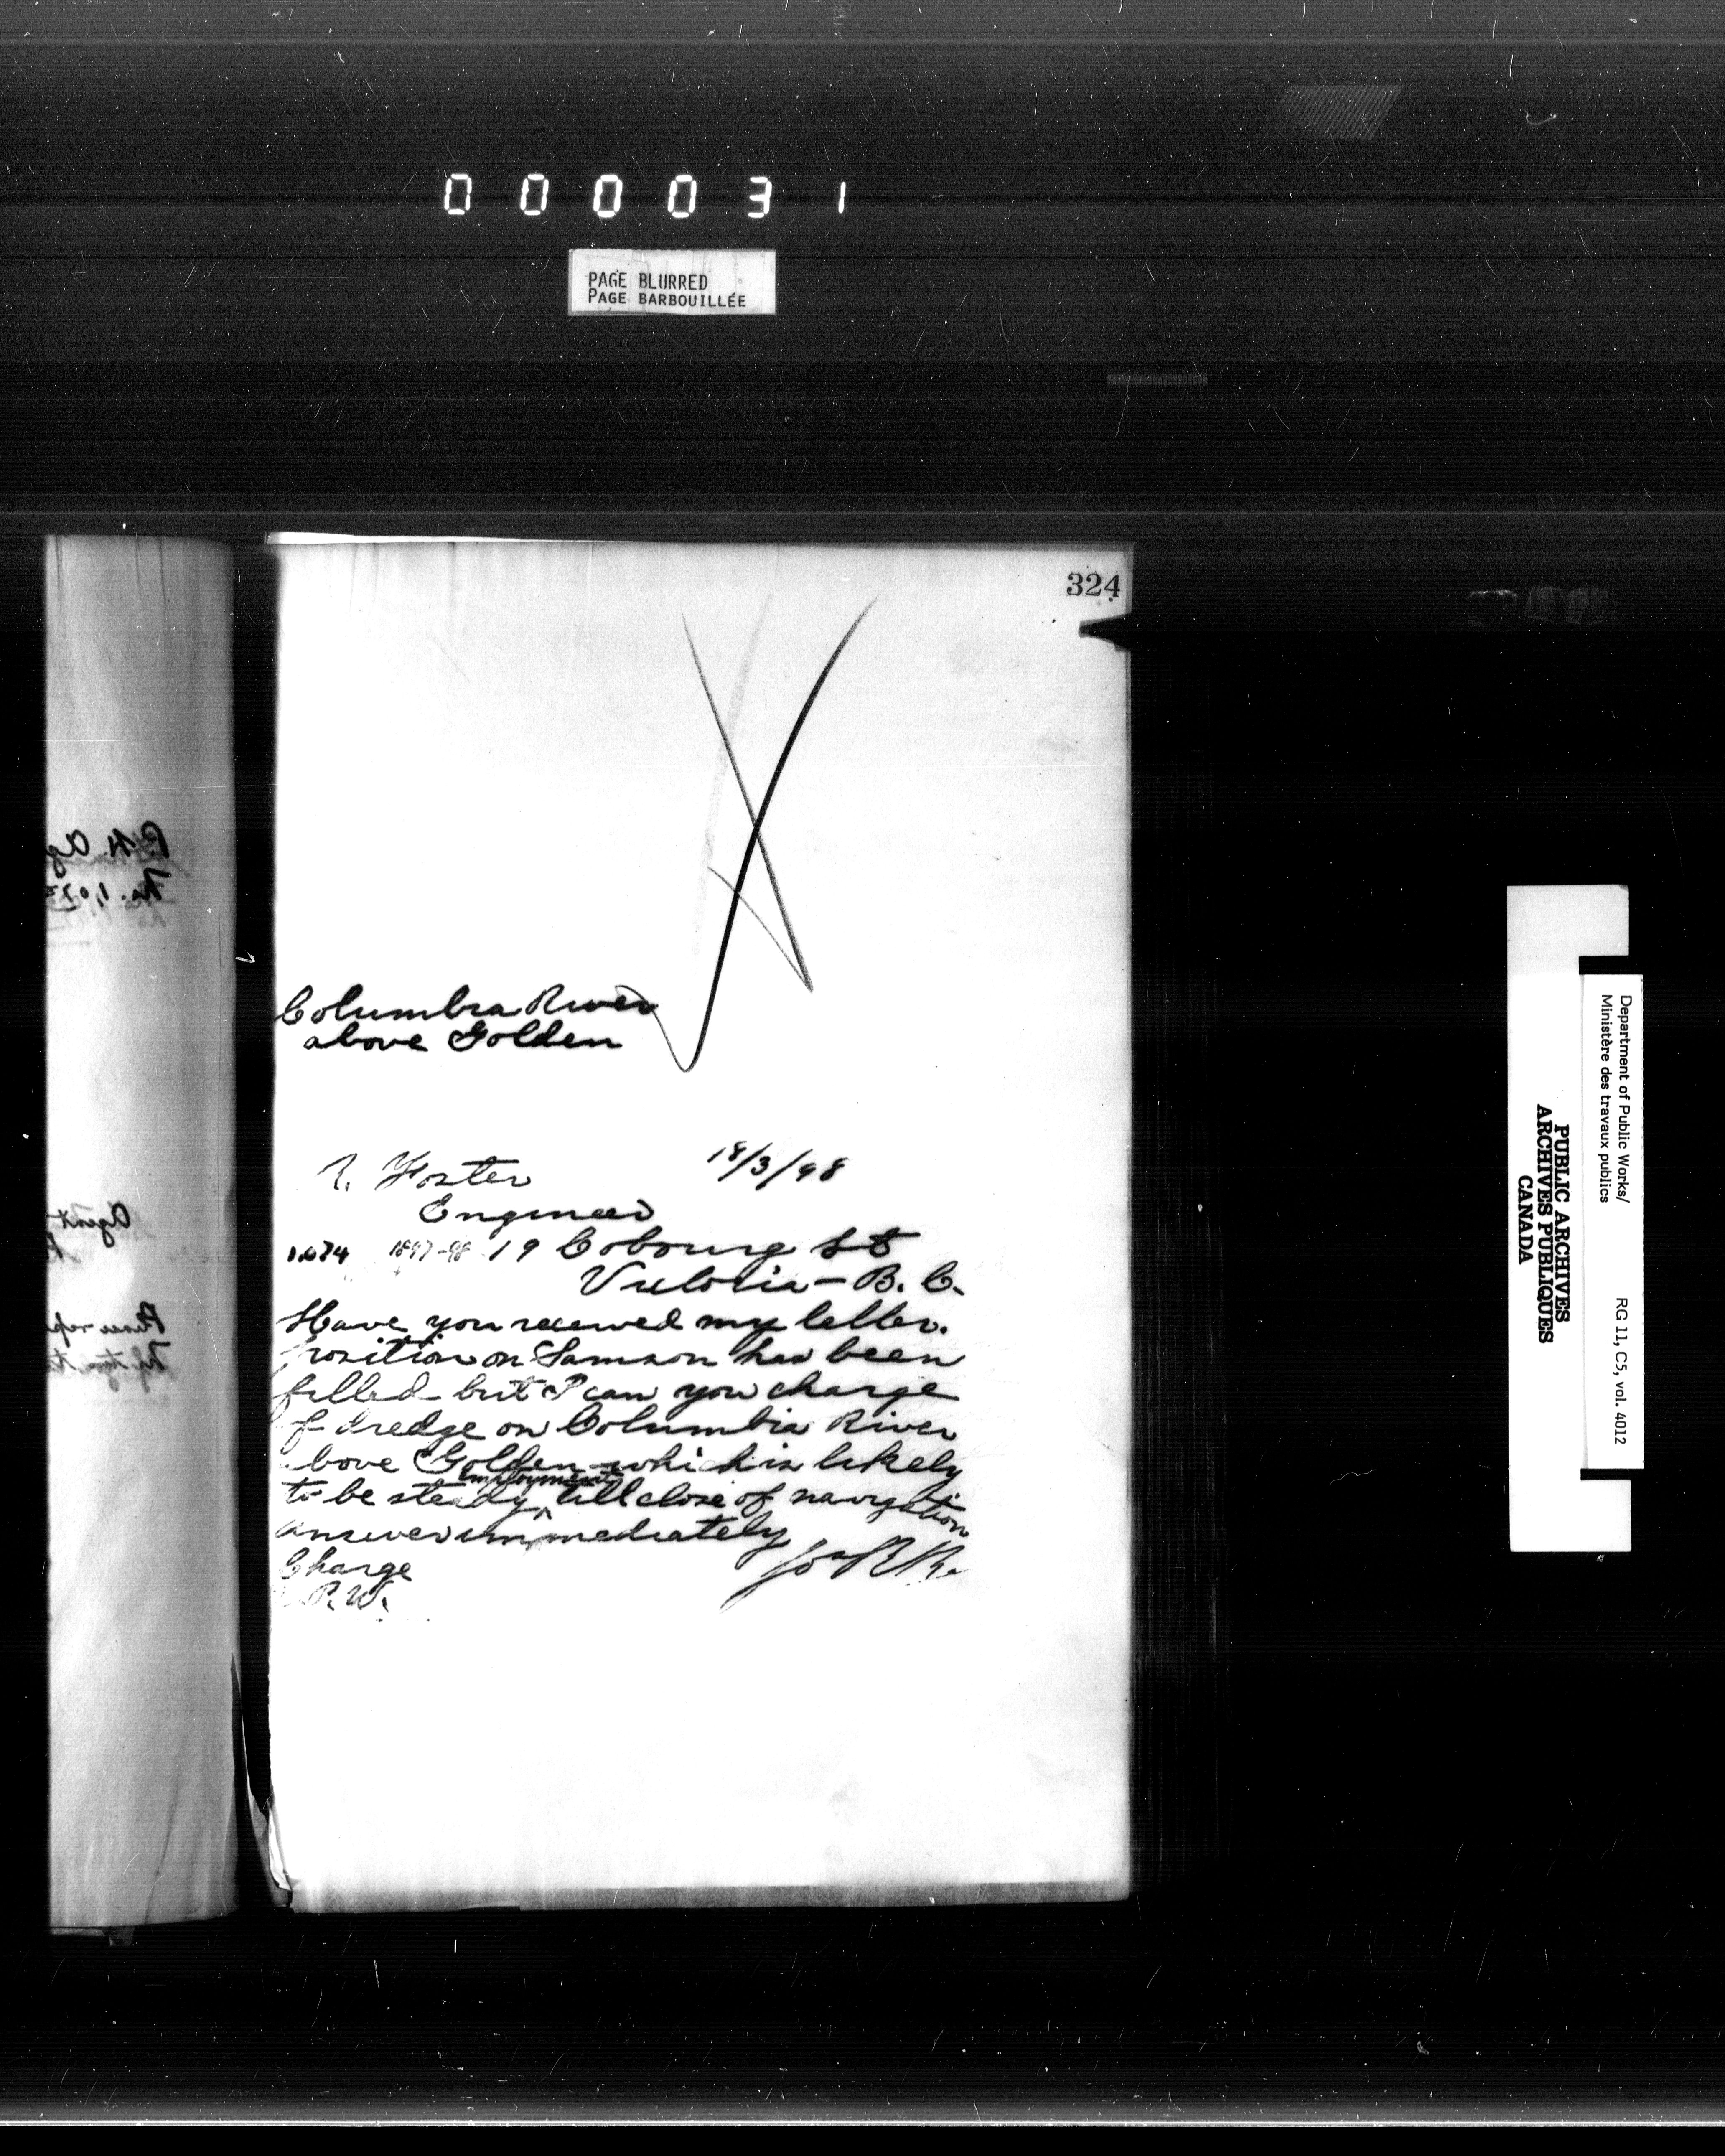 000031
PAGE BLURRED
PAGE BARBOUILLÉE
324
Columbia River
above Golden
18/3/98
R. Foster
Engineer
1.074 1897-98 19 Cobourg St
Victoria - B. C.
Have you received my letter.
position on Samson has been
filled but I can you charge
of dredge on Columbia River
above Golden which is likely
to be steady employment till close of navigation
answer immediately
Charge
P. W.
Department of Public Works/
Ministère des travaux publics
RG 11, C5, vol. 4012
PUBLIC ARCHIVES
ARCHIVES PUBLIQUES
CANADA